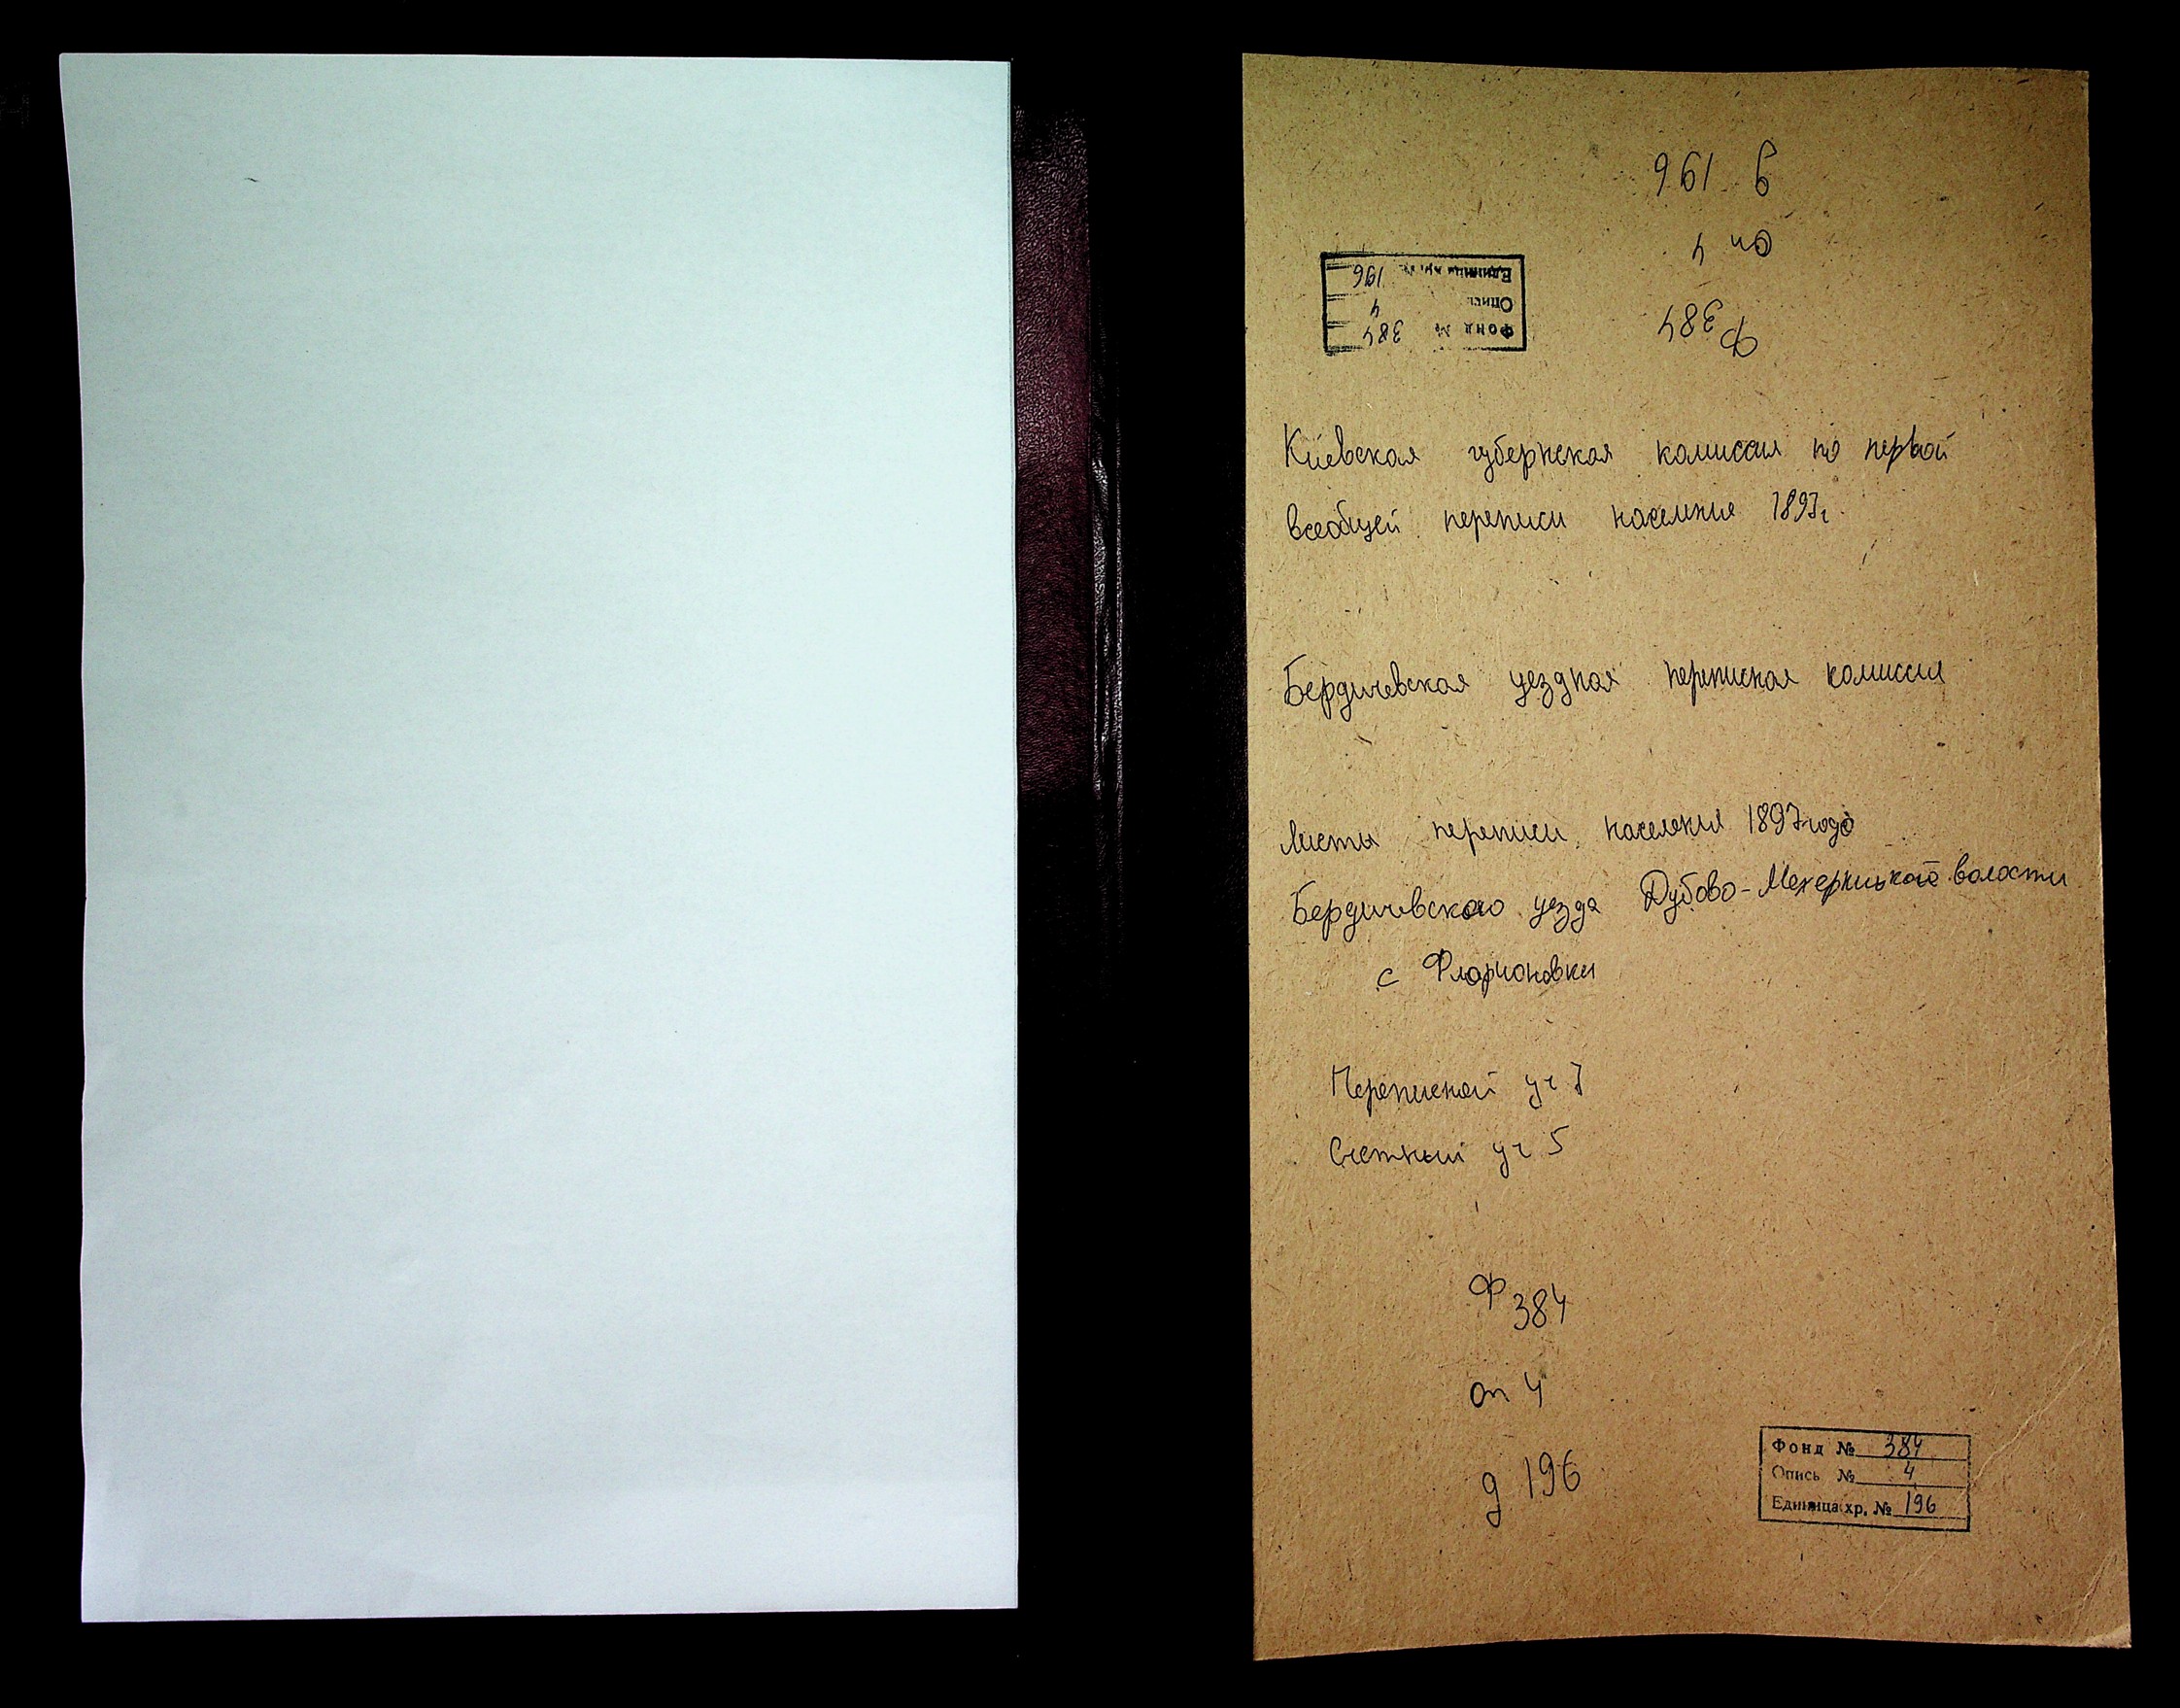 д 196
Оп 4
Ф 384
Фонд № 384
Опись 4
Единица хр. № 196
Киевская губернская комиссия по первой
всеобщей переписи населения 1897г.
Бердичевская уездная переписная комиссия
Листы переписи населения 1897 года
Бердичевского уезда Дубово-Мехеринской волости
с Флорионовки
Переписной уч 7
Счетный уч 5
Ф 384
оп 4
д 196
Фонд № 384
Опись № 4
Единица хр. № 196